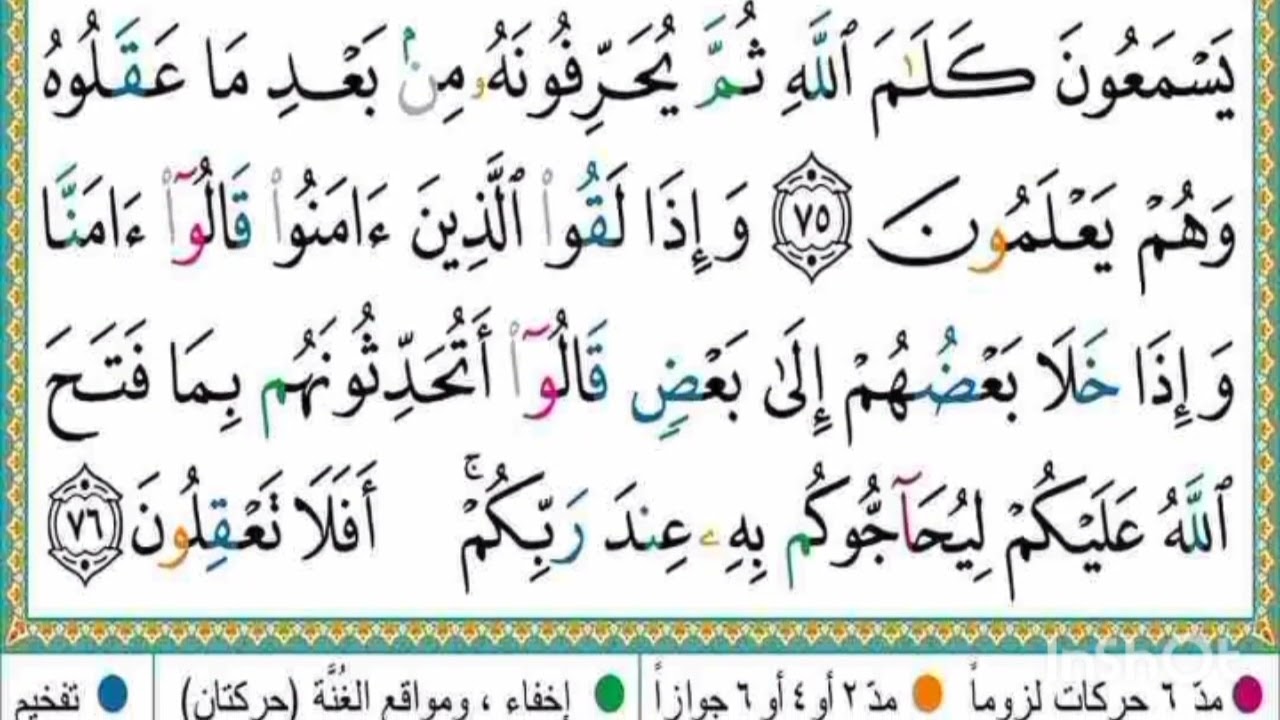 يَسْمَعُونَ كَلَٰمَ ٱللَّهِ ثُمَّ يُحَرِّفُونَهُۥ مِنۢ بَعْدِ مَا عَقَلُوهُ
وَهُمْ يَعْلَمُونَ ٧٥ وَإِذَا لَقُوا۟ ٱلَّذِينَ ءَامَنُوا۟ قَالُوٓا۟ ءَامَنَّا
وَإِذَا خَلَا بَعْضُهُمْ إِلَىٰ بَعْضٍ قَالُوٓا۟ أَتُحَدِّثُونَهُم بِمَا فَتَحَ
ٱللَّهُ عَلَيْكُمْ لِيُحَآجُّوكُم بِهِۦ عِندَ رَبِّكُمْ ۚ أَفَلَا تَعْقِلُونَ ٧٦
InShOt
مدّ ٦ حركات لزوماً مدّ ٢ أو ٤ أو ٦ جوازاً إخفاء ، ومواقع الغُنَّة (حركتان) تفخيم